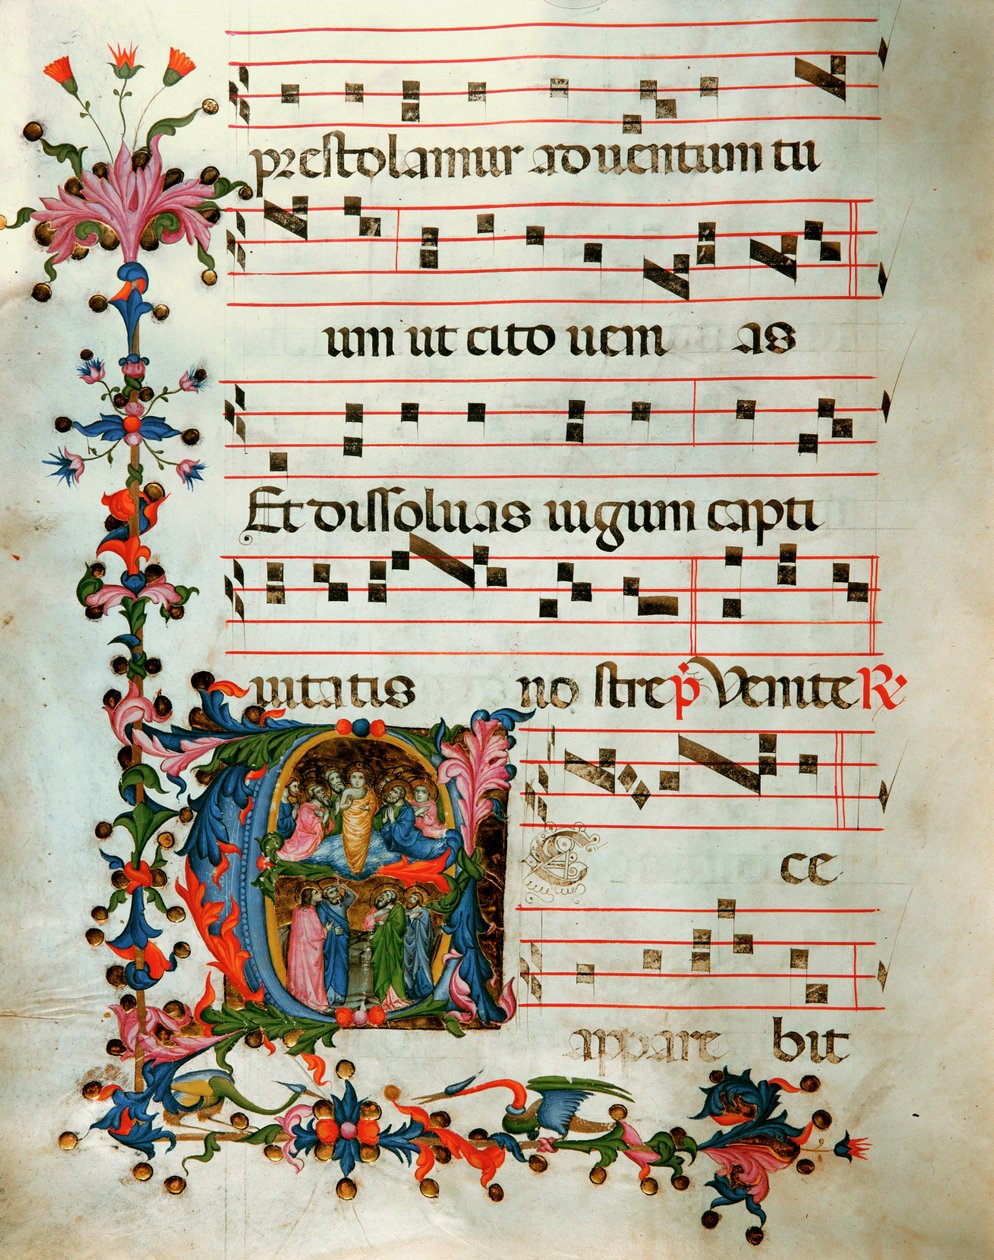 prestolamur aduentum tu
um ut cito ueni as
Et dissoluas iugum capti
uitatis no stre p Venite R
E cce
appare bit